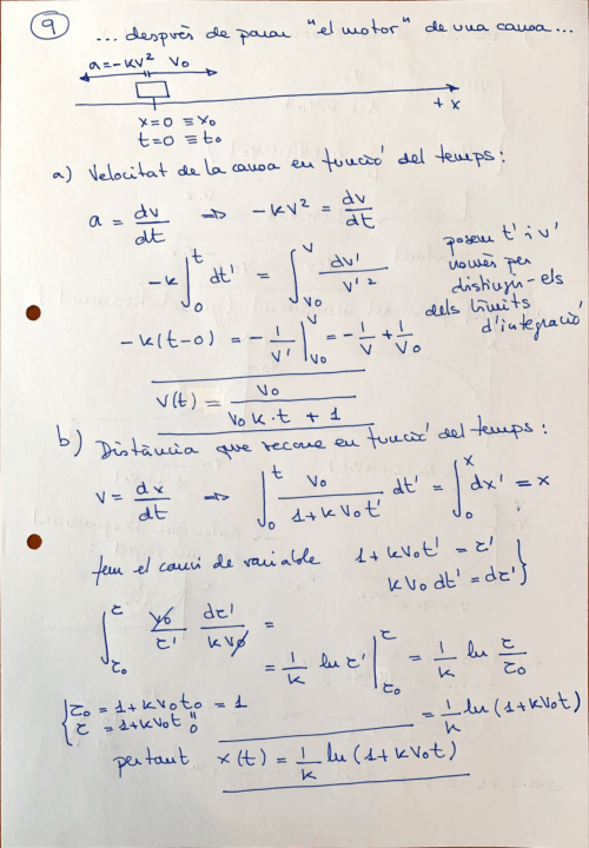 9
... després de parar "el motor" de una canoa...
a=-kv² v₀
+x
x=0 ≡ x₀
t=0 ≡ t₀
a) Velocitat de la canoa en funció del temps:
a = dv/dt → -kv² = dv/dt
-k ∫₀ᵗ dt' = ∫_{v₀}^{v} dv'/v'²
posem t' i v'
només per
distingir-els
dels límits
d'integració
-k(t-0) = -1/v' |_{v₀}^{v} = -1/v + 1/v₀
v(t) = v₀/(v₀k·t + 1)
b) Distància que recorre en funció del temps:
v = dx/dt → ∫₀ᵗ v₀/(1+kv₀t') dt' = ∫₀ˣ dx' = x
fem el canvi de variable 1+kv₀t' = τ'
kv₀dt' = dτ' }
∫_{τ₀}^{τ} v₀/τ' dτ'/kv₀ =
= 1/k ln τ' |_{τ₀}^{τ} = 1/k ln τ/τ₀
{ τ₀ = 1+kv₀t₀ = 1
τ = 1+kv₀t
"
0
= 1/k ln(1+kv₀t)
pertant x(t) = 1/k ln(1+kv₀t)